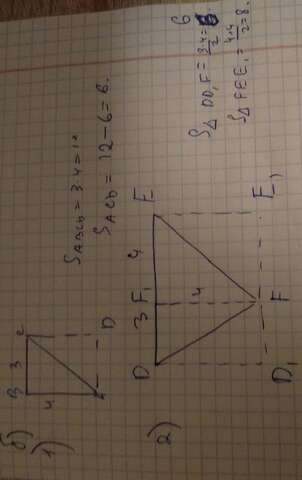 б)
1)
B 3 C
4
A D
S ABCD = 3·4 = 12
S ACD = 12 – 6 = 6.
2)
D 3 F₁ 4 E
4
D₁ F E₁
S△ DD₁F = 3·4/2 = 6
S△ FEE₁ = 4·4/2 = 8.